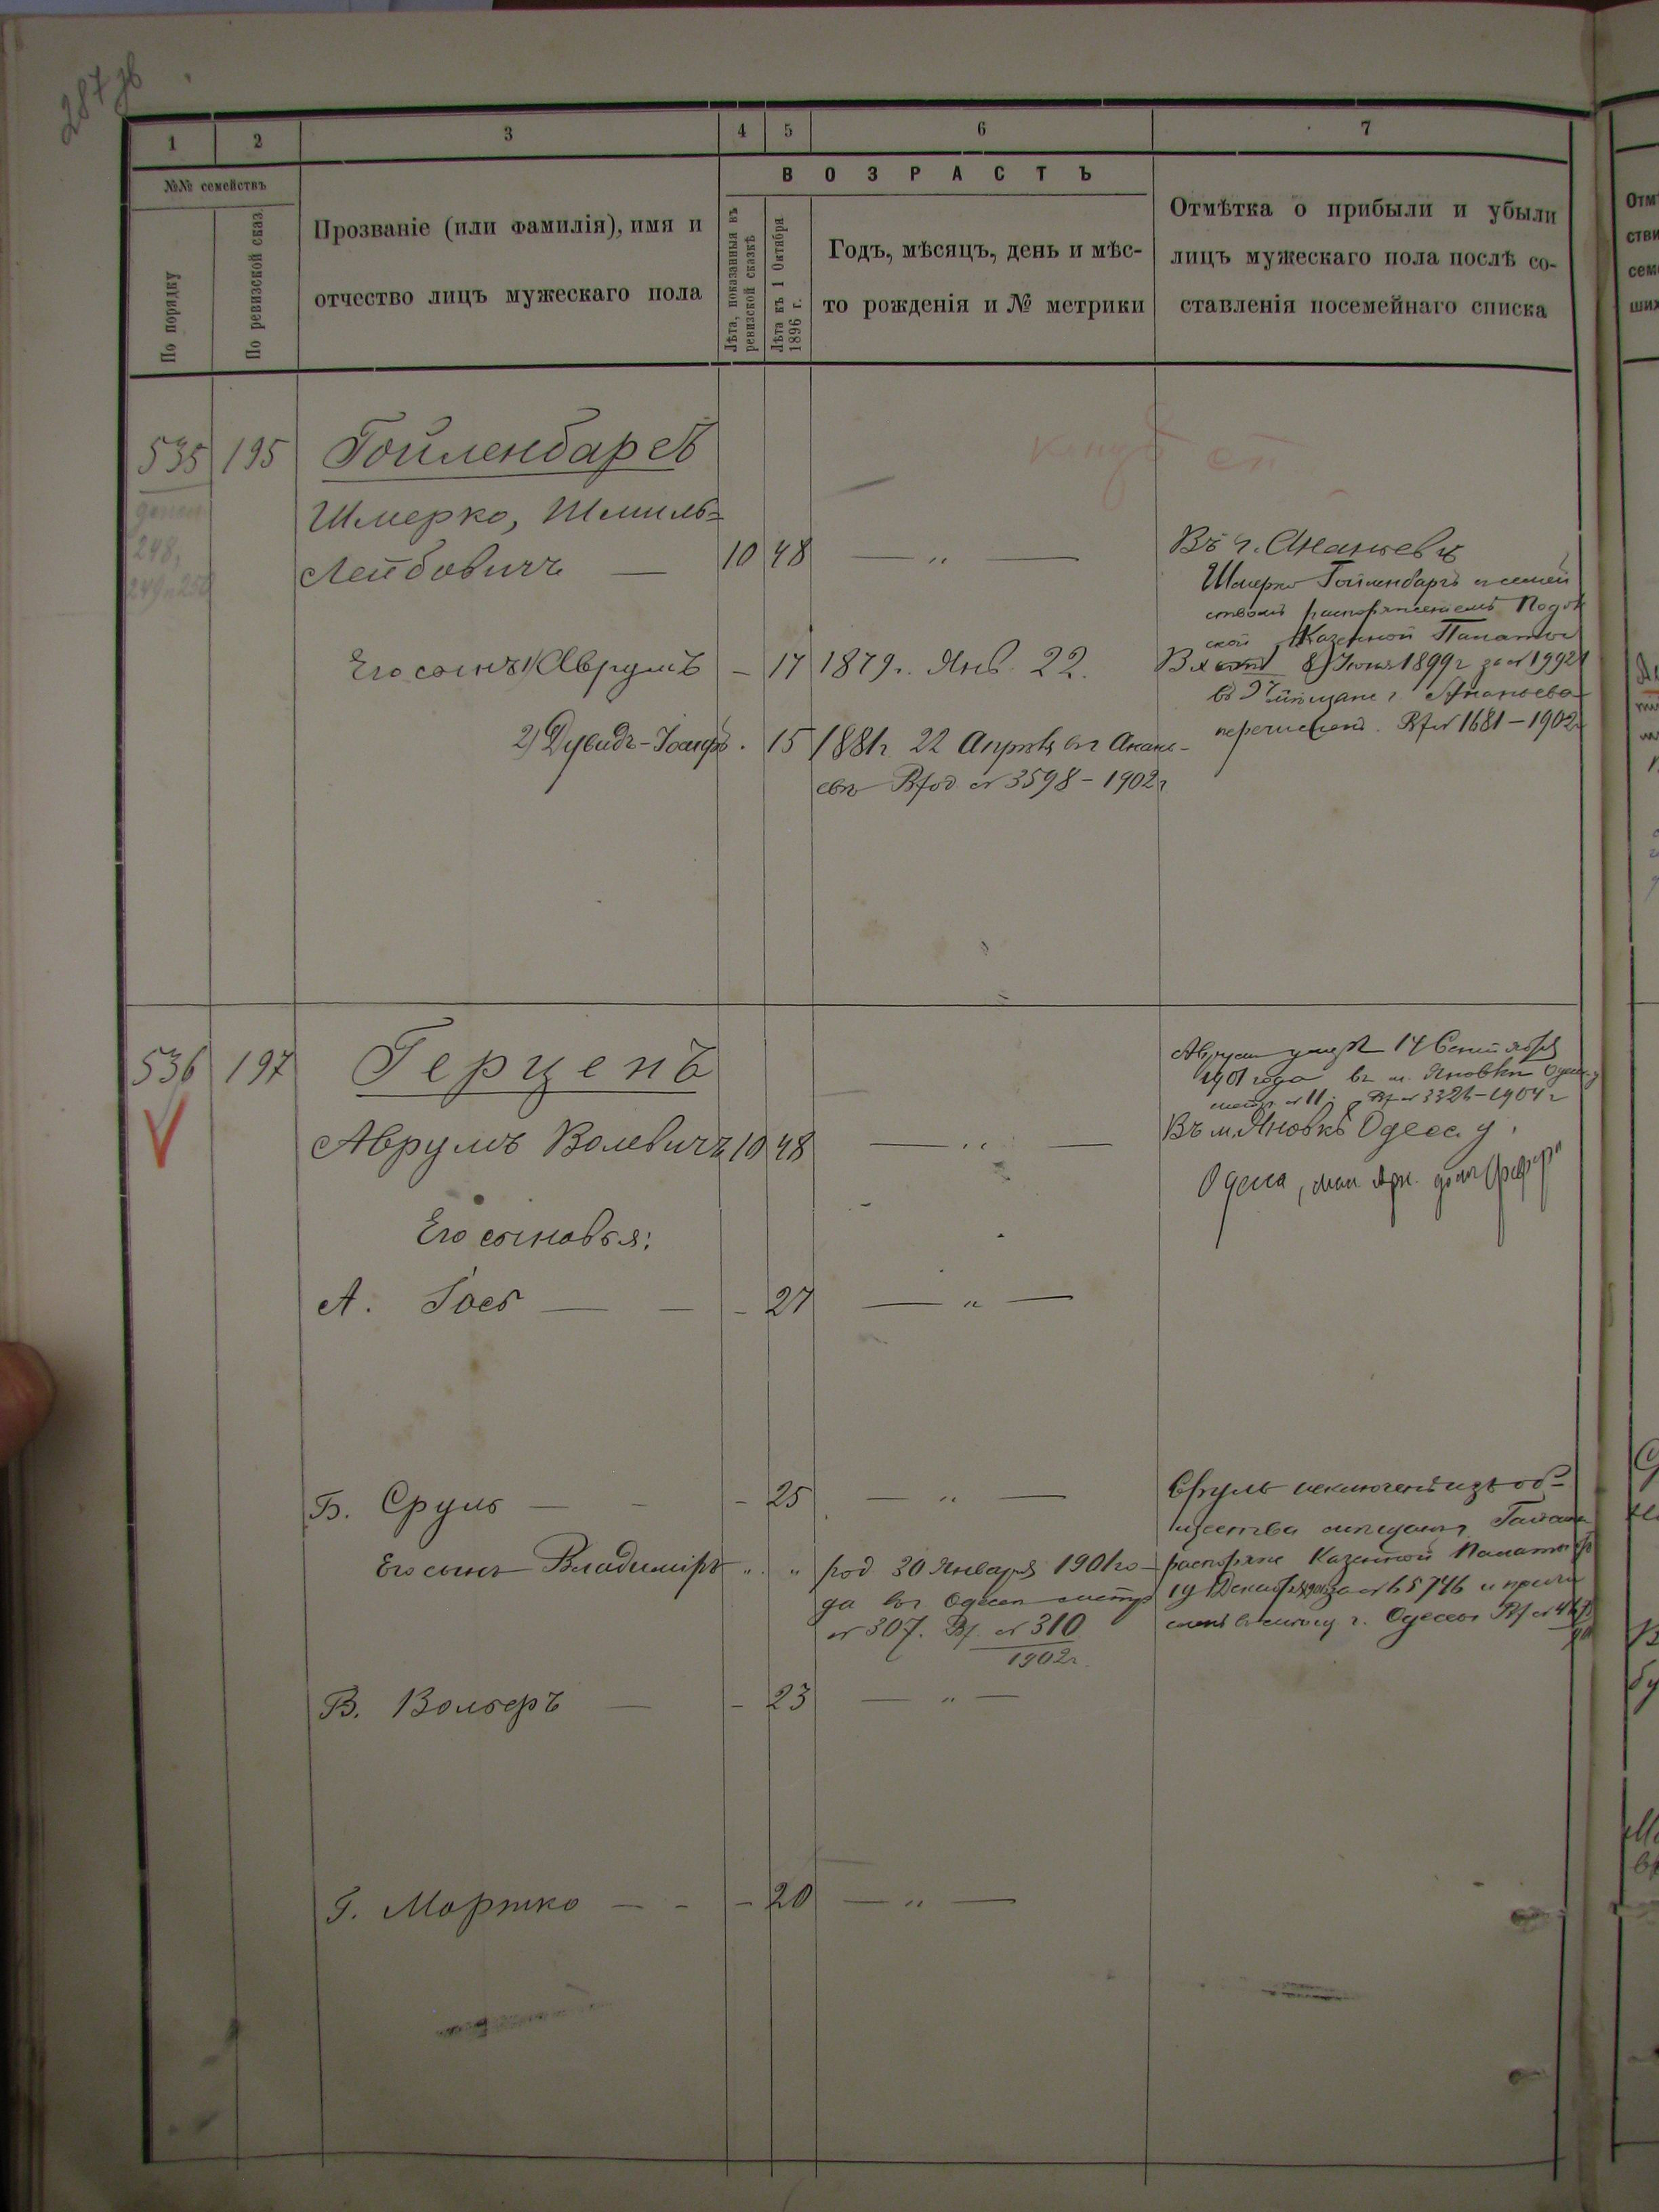 287 об
1 2 3 4 5 6 7
№№ семействъ
По порядку
По ревизской сказ.
Прозваніе (или фамилія), имя и
отчество лицъ мужескаго пола
ВОЗРАСТЪ
Лѣта, показанныя въ
ревизской сказкѣ
Лѣта къ 1 Октября
1896 г.
Годъ, мѣсяцъ, день и мѣс-
то рожденія и № метрики
Отмѣтка о прибыли и убыли
лицъ мужескаго пола послѣ со-
ставленія посемейнаго списка
535 195 Гойленбаргъ
Шмерко, Шмиль-
Лейбовичъ — 10 48 — " —
248,
249 и 250
Въ г. Ананьевѣ
Шмерко Гойленбаргъ съ семей
ствомъ распоряженіемъ Подол
ской Казенной Палаты
Его сынъ 1) Аврумъ – 17 1879 г. Янв. 22.
8 Іюня 1899 г за № 19921
въ мѣщане г Ананьева
перечисленъ. Вх № 1681 – 1902
2) Дувидъ-Іосифъ . 15 1881 г 22 Апрѣля въ Ананье-
евѣ Вход № 3598 – 1902 г
536 197 Герценъ
Аврумъ Волевичъ 10 48 — " —
Аврумъ умеръ 14 Сентября
1901 года въ м. Яновкѣ Одес. у
метр. № 11. Вх № 3321 – 1904 г
Въ м. Яновкѣ Одесс. у.
Одесса, дом
Его сыновья:
А. Іось — — – 27 — " —
Б. Сруль — – – 25 — " —
Сруль исключенъ изъ об-
щества мѣщанъ
Его сынъ Владиміръ " " род 30 Января 1901 го-
да въ Одессѣ метр
№ 307. Вх. № 310
1902 г.
распоряж Казенной Палаты
19 Декабря за № 65746 и причи
сленъ въ г. Одессы Вх №
В. Вольферъ — – 23 — " —
Г. Мортко — – – 20 — " —